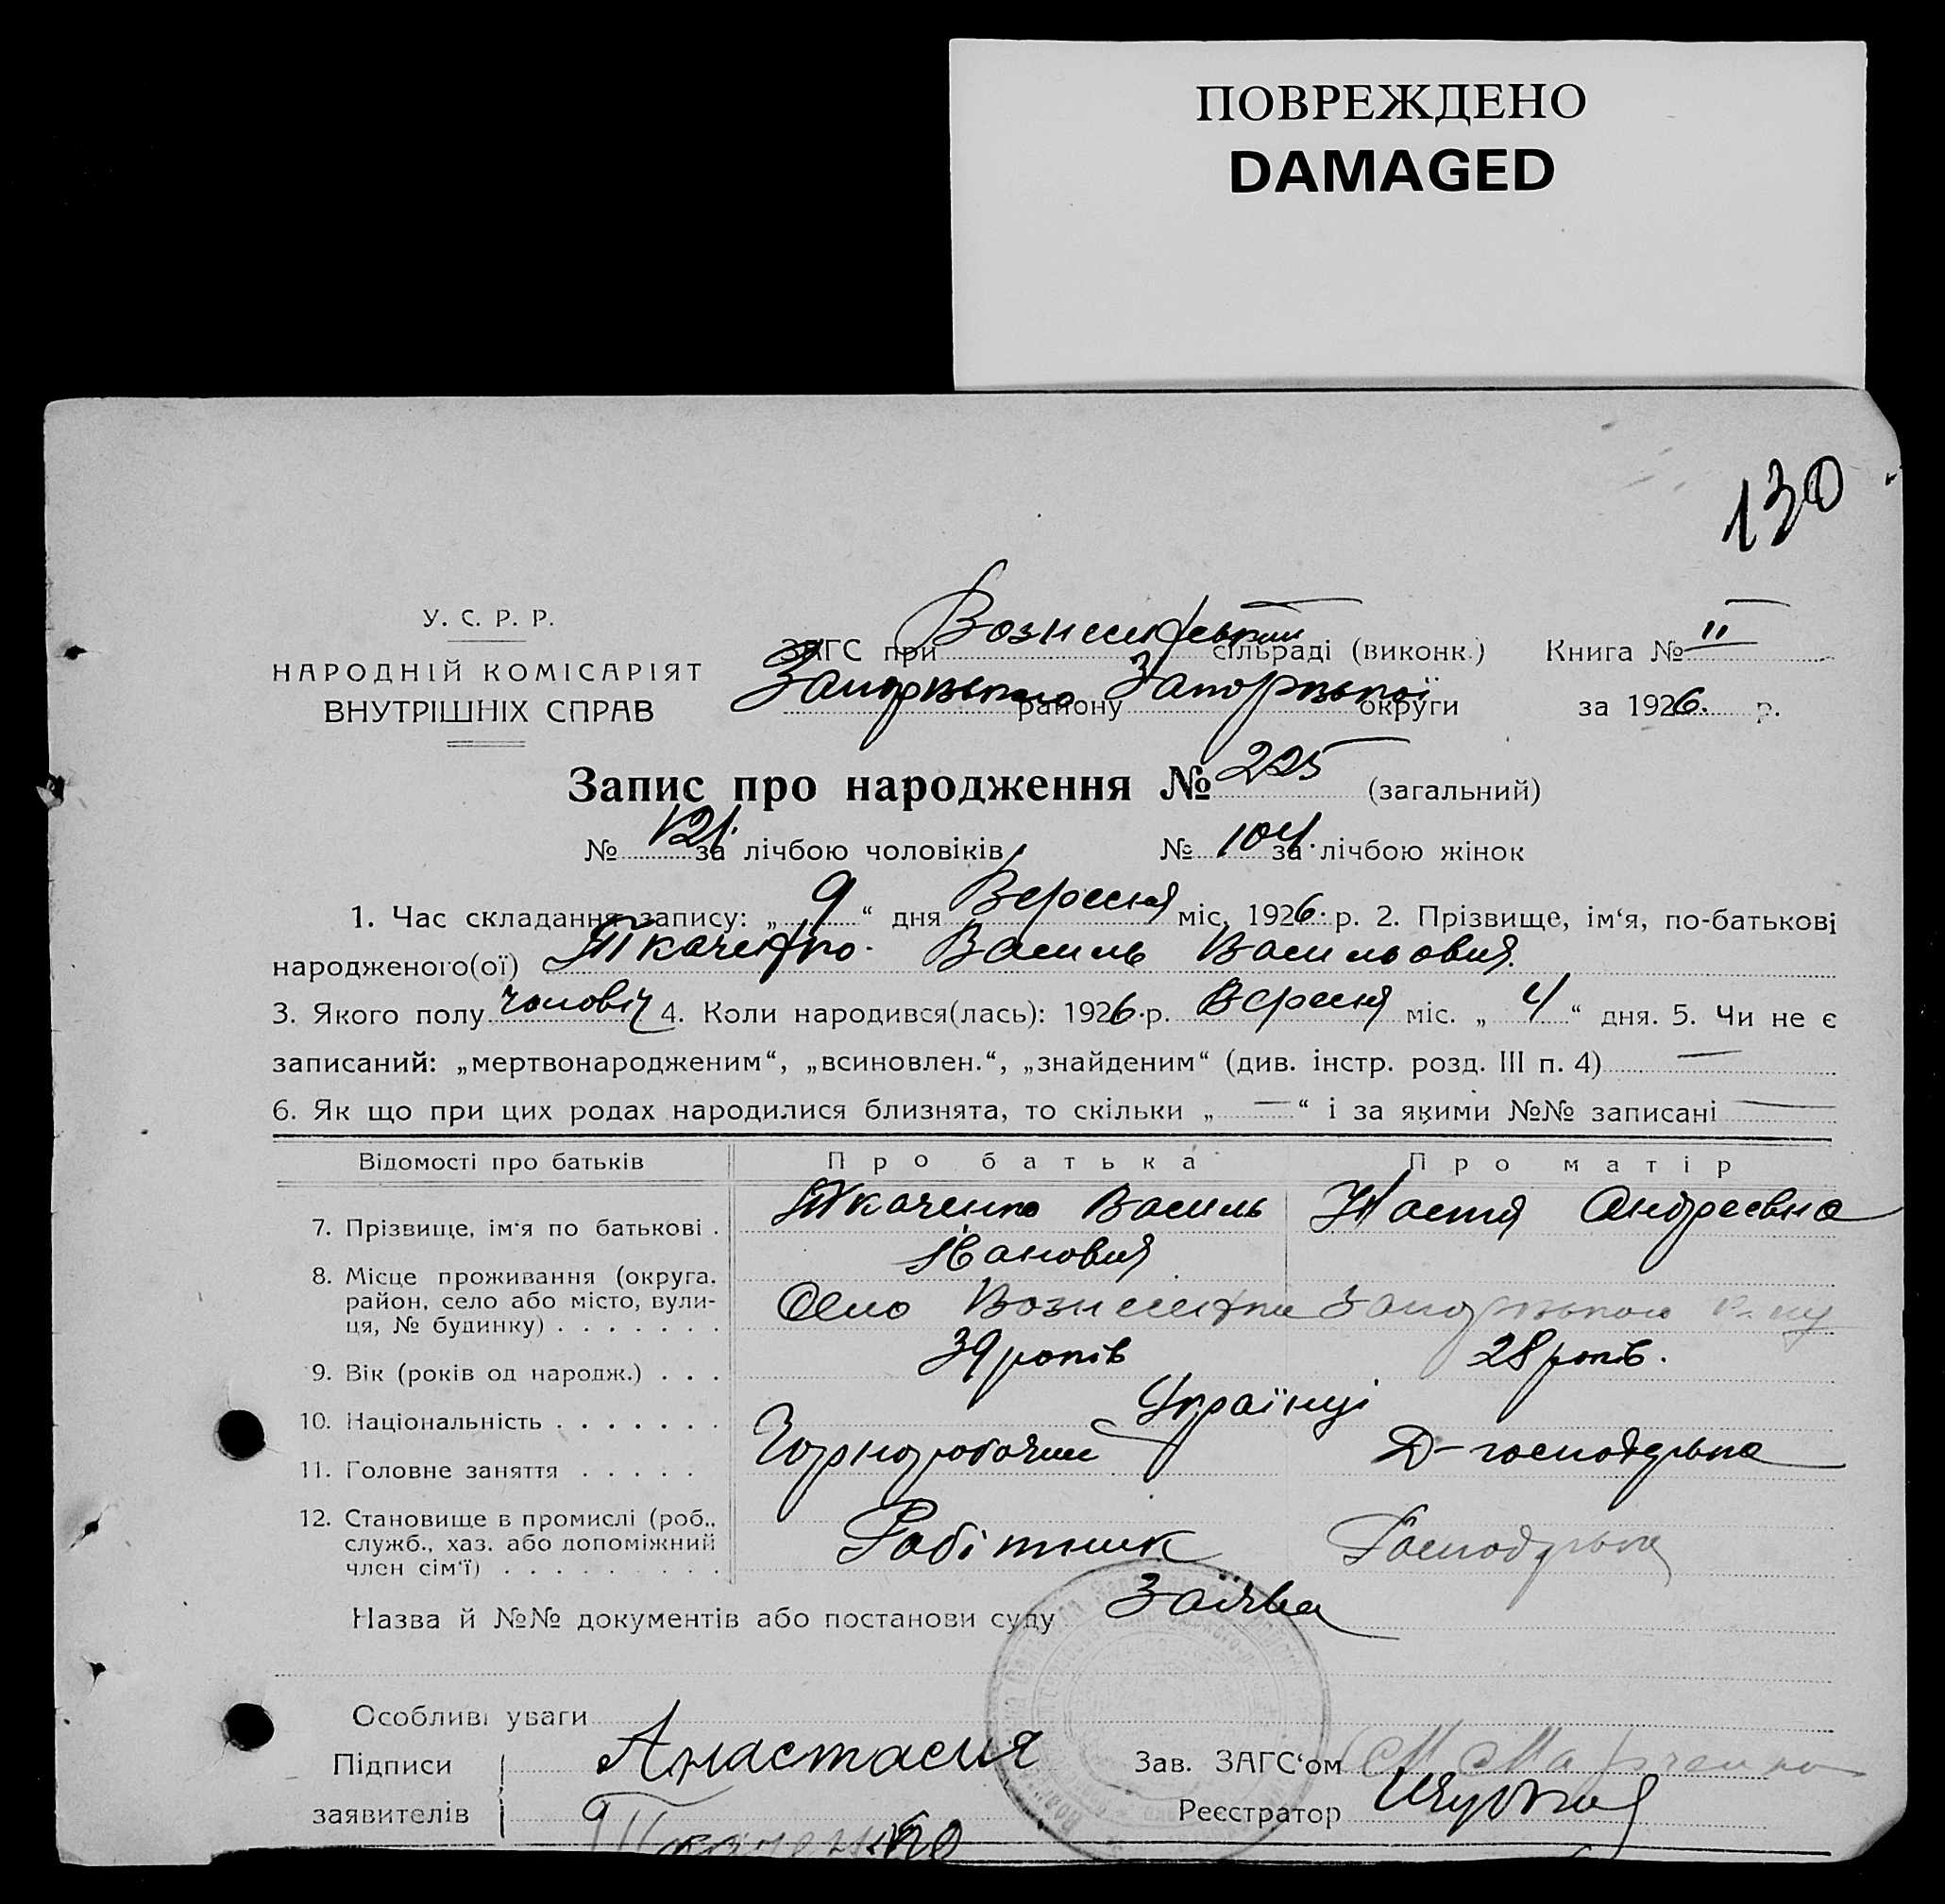 ПОВРЕЖДЕНО
DAMAGED
130
У. С. Р. Р.
НАРОДНІЙ КОМІСАРІЯТ
ВНУТРІШНІХ СПРАВ
ЗАГС при сільраді (виконк.) Книга № II
району Запорізької округи за 1926. р.
Запис про народження № 225 (загальний)
№ 121. за лічбою чоловіків № 104. за лічбою жінок
1. Час складання запису: „ 9 “ дня Вересня міс. 1926. р. 2. Прізвище, ім‘я, по-батькові
народженого(ої) Ткаченко. Василь Васильович.
3. Якого полу чоловіч 4. Коли народився(лась): 1926. р. Вересня міс. „ 4 “ дня. 5. Чи не є
записаний: „мертвонародженим“, „всиновлен.“, „знайденим“ (див. інстр. розд. III п. 4) —
6. Як що при цих родах народилися близнята, то скільки „ — “ і за якими №№ записані —
Відомості про батьків Про батька Про матір
7. Прізвище, ім‘я по батькові . Ткаченко Василь Іванович Настя Андреевна
8. Місце проживання (округа, район, село або місто, вули-
ця, № будинку) . . . . . . . Село
9. Вік (років од народж.) . . . 39 років 28 років.
10. Національність . . . . . . . Українці
11. Головне заняття . . . . . Чорноробочий Д-господарька
12. Становище в промислі (роб., служб., хаз. або допоміжний
член сім‘ї) . . . . . . . . . Робітник Господарька
Назва й №№ документів або постанови суду Заїява
Особливі уваги
Підписи Анастасия Зав. ЗАГС‘ом
заявителів Ткаченко Реєстратор